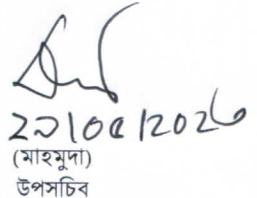 ২১/০৫/২০২৬
(মাহমুদা)
উপসচিব